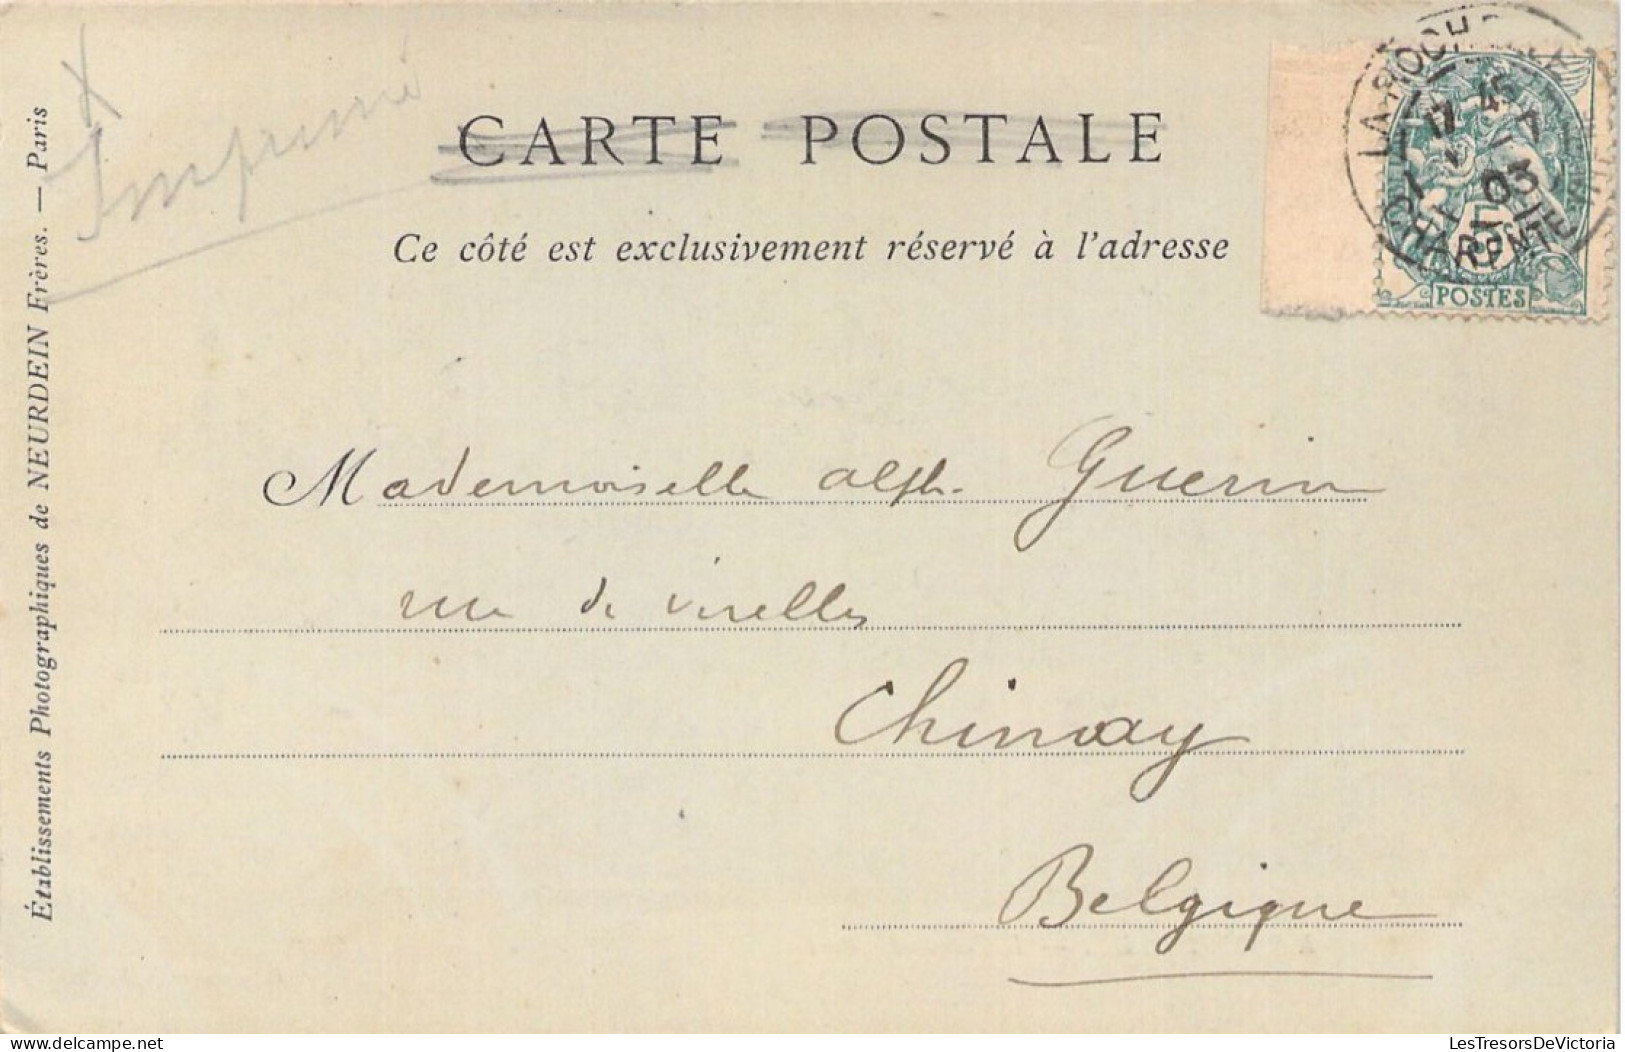 Imprimé
CARTE POSTALE
Ce côté est exclusivement réservé à l'adresse
LA ROCHELLE
17 45
03
CHARENTE INFRE
5c
POSTES
Mademoiselle Alph. Guerin
rue de Virelles
Chimay
Belgique
Établissements Photographiques de NEURDEIN Frères. — Paris
LesTresorsDeVictoria